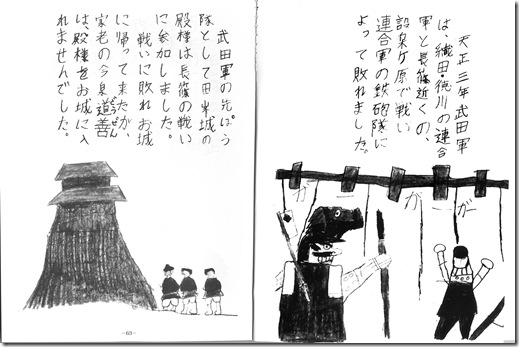 天正三年武田軍
は、織田・徳川の連合
軍と長篠近くの、
設楽ケ原で戦い
連合軍の鉄砲隊に
よって敗れました。
武田軍の先ぽう
隊として田峯城の
殿様は長篠の戦い
に参加しました。
戦いに敗れお城
に帰って来たが、
家老の今泉道善
どうぜん
は、殿様をお城に入
れませんでした。
-63-